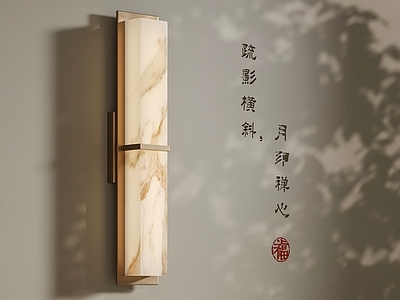 疏影横斜，
月印禅心
福